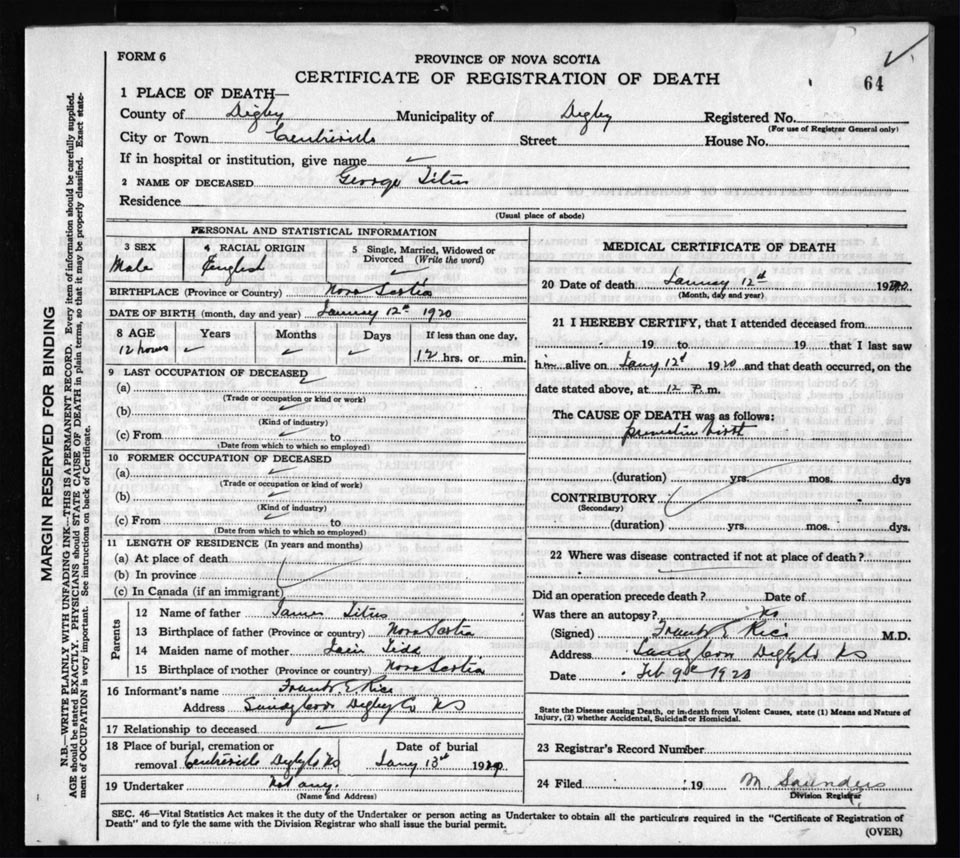 FORM 6
PROVINCE OF NOVA SCOTIA
CERTIFICATE OF REGISTRATION OF DEATH
64
1 PLACE OF DEATH—
County of Digby Municipality of Digby Registered No.
(For use of Registrar General only)
City or Town Centreville Street House No.
If in hospital or institution, give name
2 NAME OF DECEASED George Titus
Residence
(Usual place of abode)
PERSONAL AND STATISTICAL INFORMATION
3 SEX Male
4 RACIAL ORIGIN English
5 Single, Married, Widowed or Divorced (Write the word)
BIRTHPLACE (Province or Country) Nova Scotia
DATE OF BIRTH (month, day and year) January 12th 1920
8 AGE Years Months Days If less than one day,
12 hours 12 hrs. or min.
9 LAST OCCUPATION OF DECEASED
(a)
(Trade or occupation or kind or work)
(b)
(Kind of industry)
(c) From to
(Date from which to which so employed)
10 FORMER OCCUPATION OF DECEASED
(a)
(Trade or occupation or kind of work)
(b)
(Kind of industry)
(c) From to
(Date from which to which so employed)
11 LENGTH OF RESIDENCE (In years and months)
(a) At place of death
(b) In province
(c) In Canada (if an immigrant)
Parents
12 Name of father James Titus
13 Birthplace of father (Province or country) Nova Scotia
14 Maiden name of mother
15 Birthplace of mother (Province or country) Nova Scotia
16 Informant's name Frank E Rice
Address Sandy Cove Digby Co NS
17 Relationship to deceased
18 Place of burial, cremation or removal Centreville Digby Co NS
Date of burial Jany 13th 1920
19 Undertaker Not any.
(Name and Address)
MEDICAL CERTIFICATE OF DEATH
20 Date of death January 12th 1920
(Month, day and year)
21 I HEREBY CERTIFY, that I attended deceased from
19 to 19 that I last saw
him alive on Jany 12th 1920 and that death occurred, on the
date stated above, at 12 P.m.
The CAUSE OF DEATH was as follows:
birth
(duration) yrs. mos. dys
CONTRIBUTORY
(Secondary)
(duration) yrs. mos. dys.
22 Where was disease contracted if not at place of death?
Did an operation precede death? Date of
Was there an autopsy? No
(Signed) Frank E Rice M.D.
Address Sandy Cove Digby Co NS
Date Feb 9th 1920
State the Disease causing Death, or in death from Violent Causes, state (1) Means and Nature of
Injury, (2) whether Accidental, Suicidal or Homicidal.
23 Registrar's Record Number
24 Filed 19 M. Saunders
Division Registrar
SEC. 46—Vital Statistics Act makes it the duty of the Undertaker or person acting as Undertaker to obtain all the particulars required in the "Certificate of Registration of
Death" and to fyle the same with the Division Registrar who shall issue the burial permit.
(OVER)
MARGIN RESERVED FOR BINDING
N.B.—WRITE PLAINLY WITH UNFADING INK—THIS IS A PERMANENT RECORD. Every item of information should be carefully supplied.
AGE should be stated EXACTLY. PHYSICIANS should STATE CAUSE OF DEATH in plain terms, so that it may be properly classified. Exact state-
ment of OCCUPATION is very important. See instructions on back of Certificate.